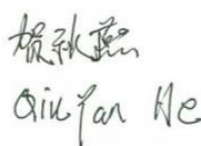 贺秋燕
Qiu Yan He